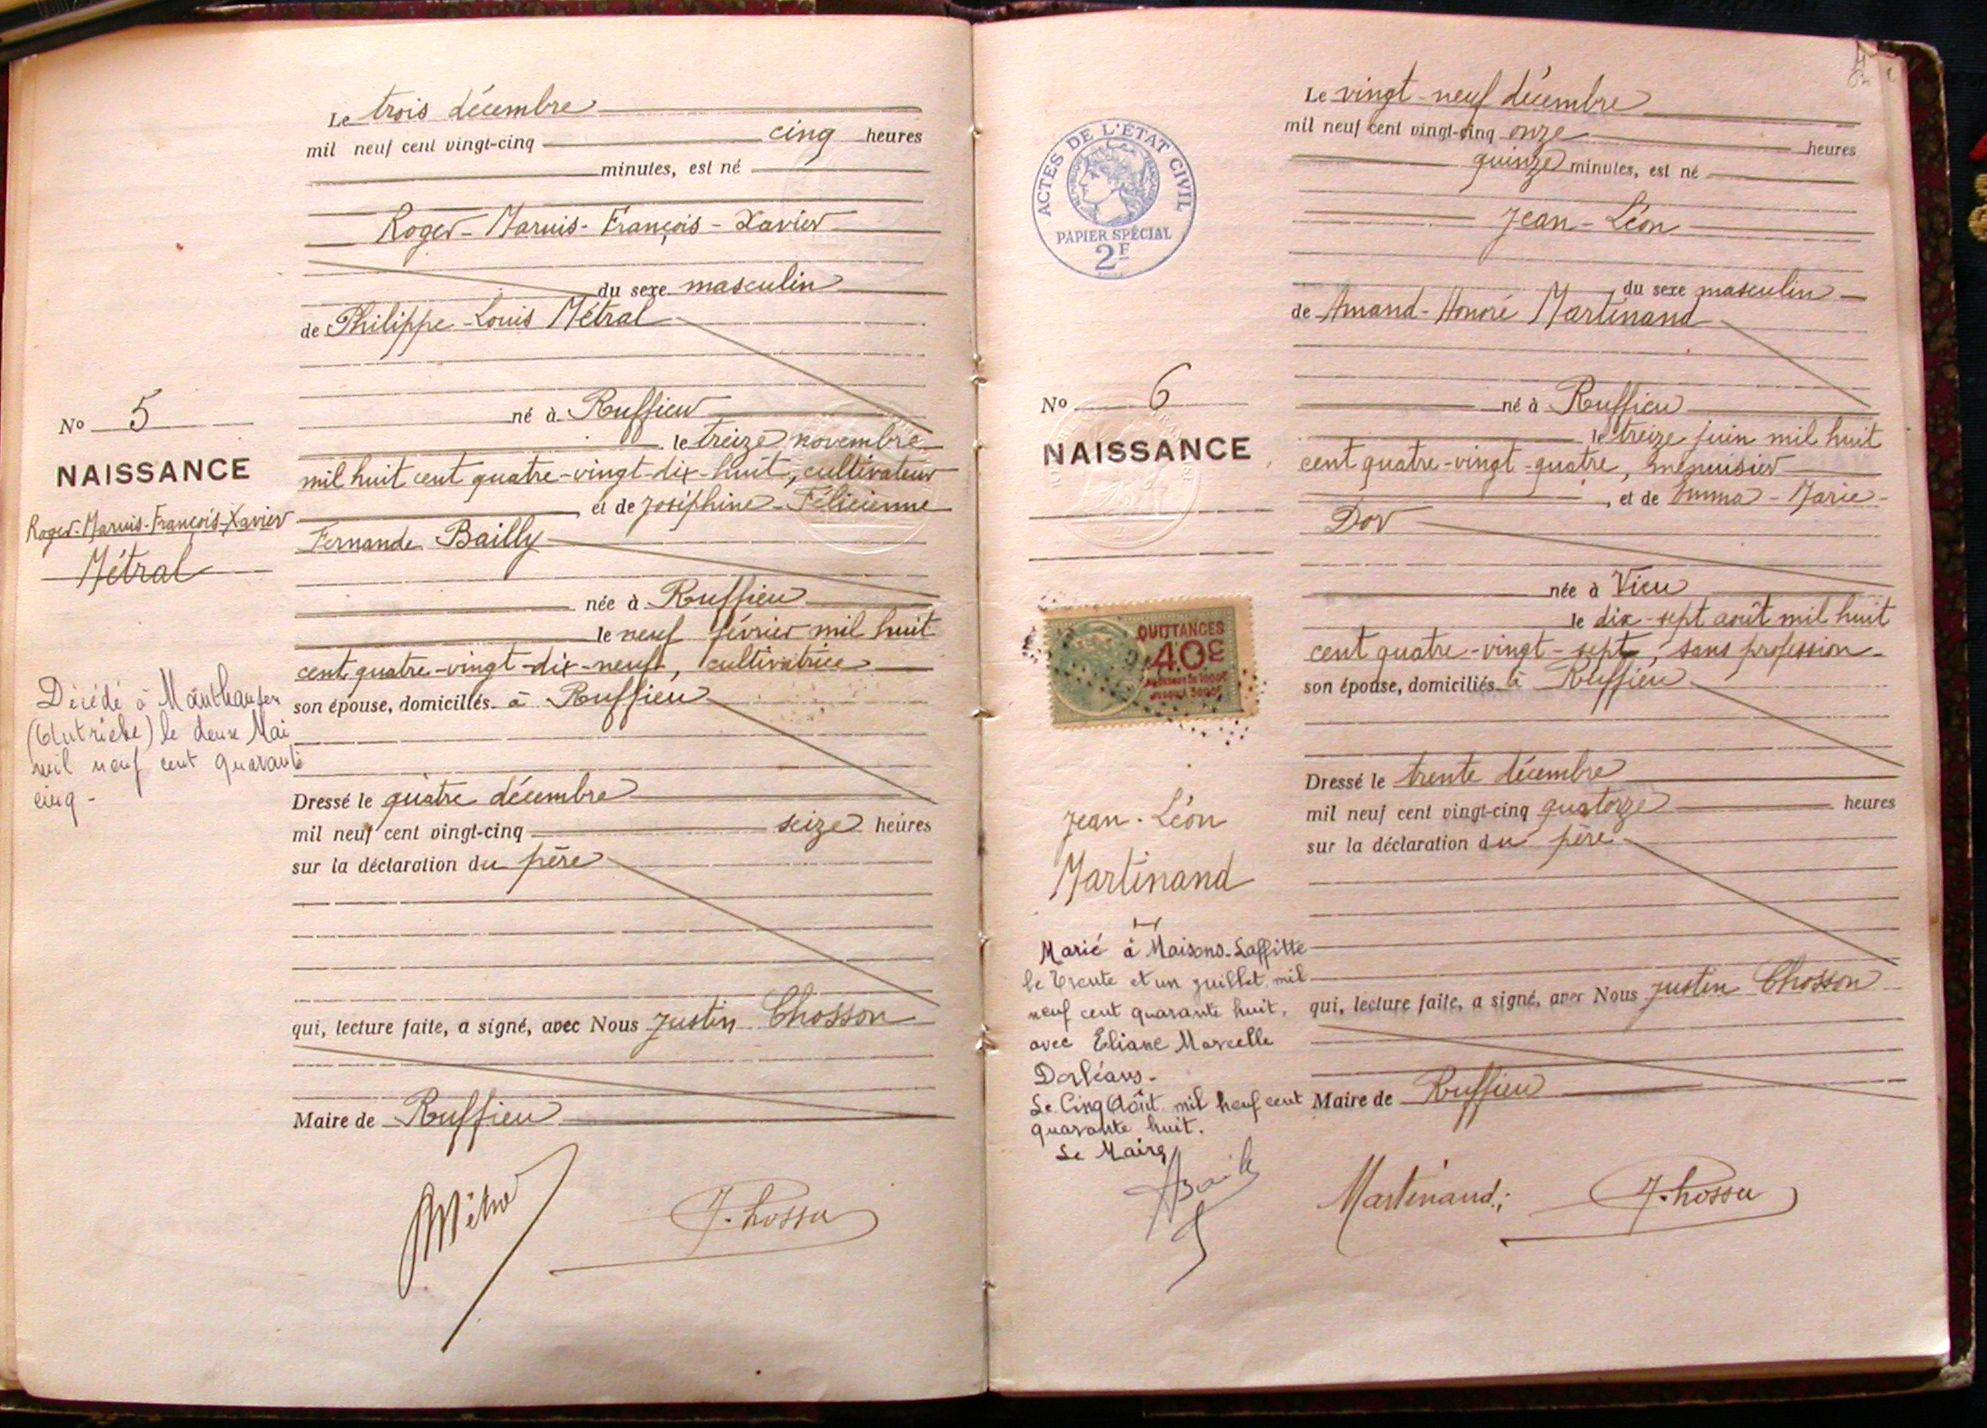 Le trois décembre
mil neuf cent vingt-cinq cinq heures
minutes, est né
Roger-Marius-François-Xavier
du sexe masculin
de Philippe-Louis Métral
né à Ruffieu
le treize novembre
mil huit cent quatre-vingt-dix-huit, cultivateur
et de Joséphine-Félicienne
Fernande Bailly
née à Ruffieu
le neuf février mil huit
cent quatre-vingt-dix-neuf, cultivatrice
son épouse, domiciliés à Ruffieu
Dressé le quatre décembre
mil neuf cent vingt-cinq seize heures
sur la déclaration du père
qui, lecture faite, a signé, avec Nous Justin Chosson
Maire de Ruffieu
No 5
NAISSANCE
Roger-Marius-François-Xavier
Métral
Décédé à Mauthausen
(Autriche) le deux Mai
mil neuf cent quarante
cinq-
Le vingt-neuf décembre
mil neuf cent vingt-cinq onze heures
quinze minutes, est né
Jean-Léon
du sexe masculin
de Amand-Honoré Martinand
né à Ruffieu
le treize juin mil huit
cent quatre-vingt-quatre, menuisier
, et de Emma-Marie-
Dov
née à Vieu
le dix-sept août mil huit
cent quatre-vingt-sept, sans profession
son épouse, domiciliés à Ruffieu
Dressé le trente décembre
mil neuf cent vingt-cinq quatorze heures
sur la déclaration du père
qui, lecture faite, a signé, avec Nous Justin Chosson
Maire de Ruffieu
Martinand
ACTES DE L'ÉTAT CIVIL
PAPIER SPÉCIAL
2F
No 6
NAISSANCE
QUITTANCES
40c
Jean-Léon
Martinand
Marié à Maisons-Laffitte
le trente et un juillet mil
neuf cent quarante huit,
avec Eliane Marcelle
Dorléans-
Le Cinq Août mil neuf cent
quarante huit.
Le Maire